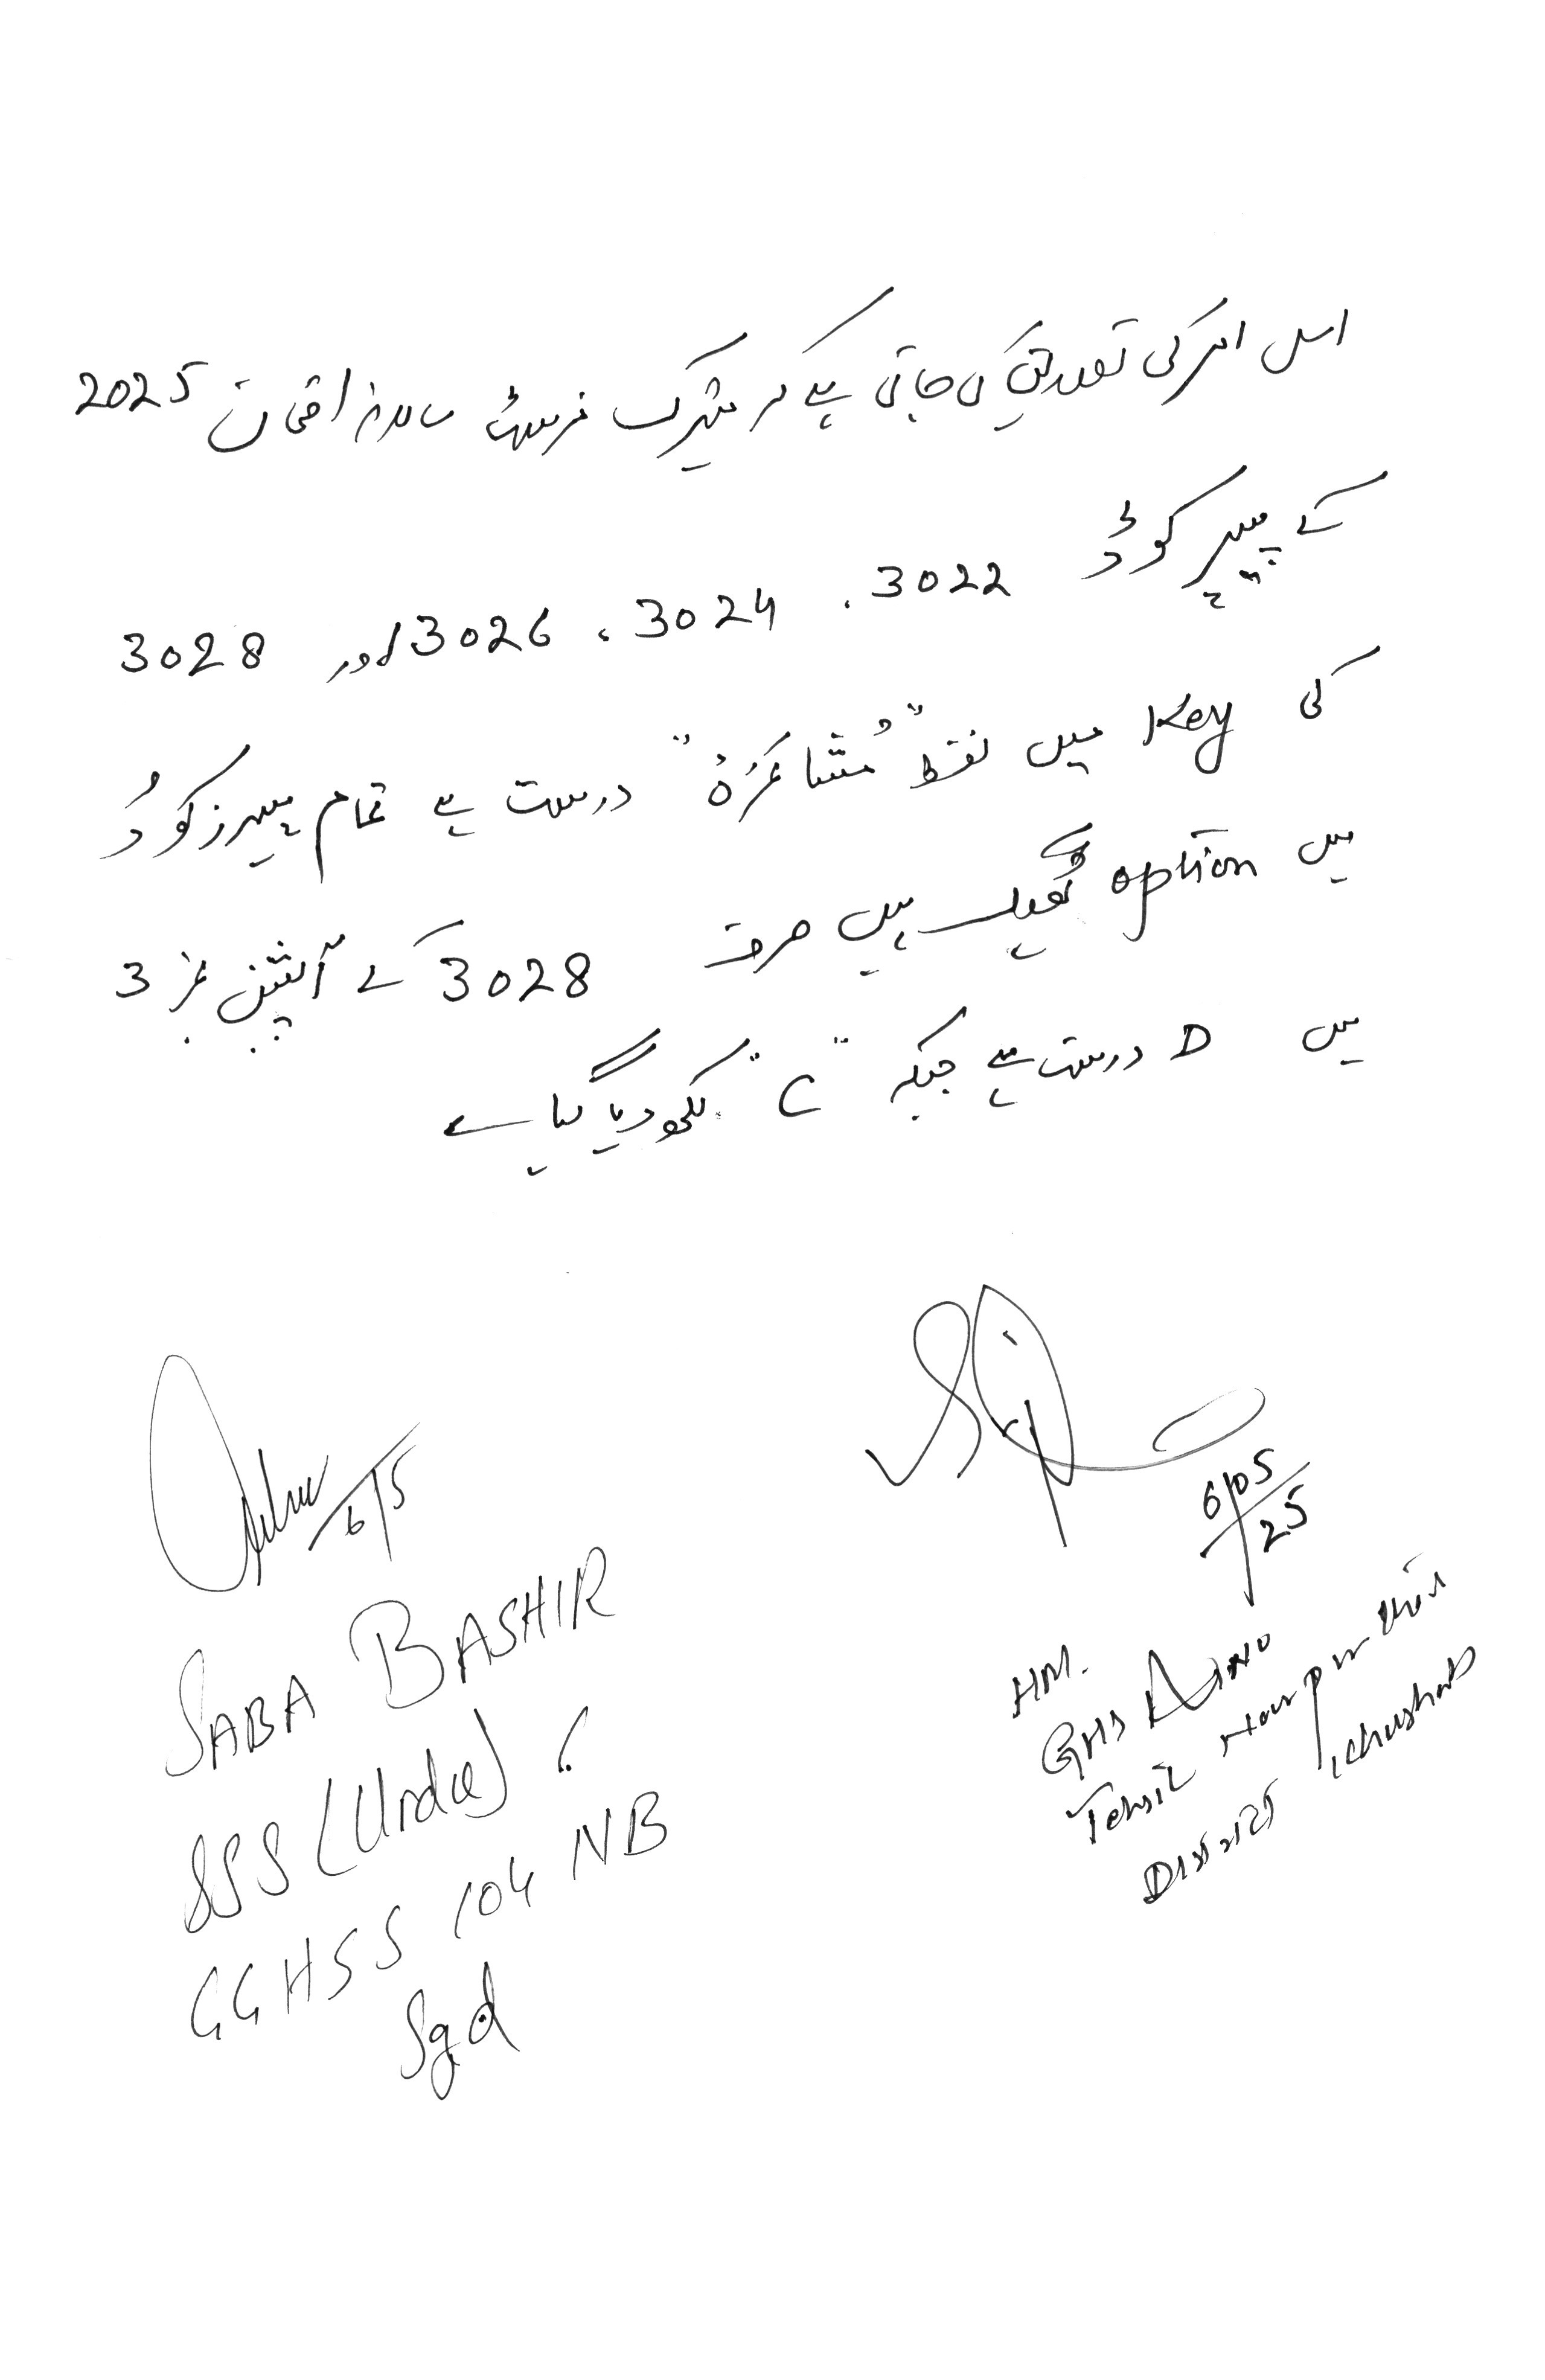 اس امر کی تصدیق کی جاتی ہے کہ میٹرک فرسٹ سالانہ امتحان 2025
کے پیپر کوڈ 3022، 3024، 3026 اور 3028
کی Key میں لفظ "مُشَاعَرَہ" درست ہے تمام پیپرز کوڈ
میں option ٹھیک ہیں صرف 3028 کے آپشن نمبر 3
میں D درست ہے جبکہ "C" لکھ دیا گیا ہے
6/5
SABA BASHIR
SSS (Urdu)
GGHSS 104 NB
Sgd
6/05/25
HM.
GHS
Tehsil Noorpur Thal
District Khushab